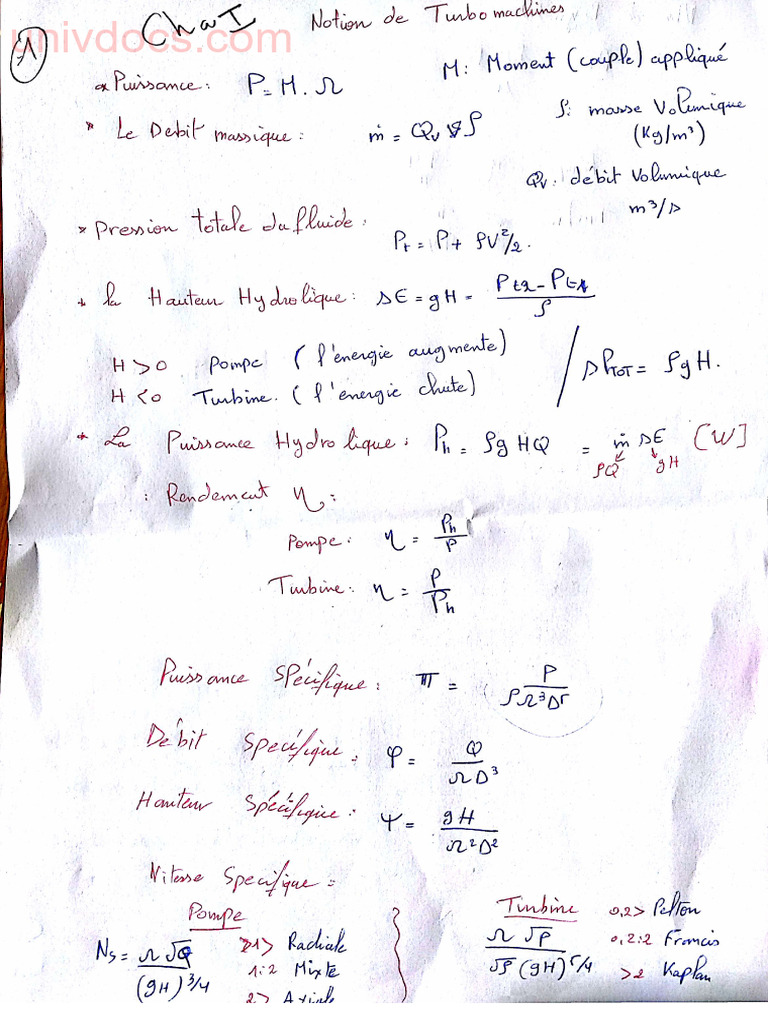 univdocs.com
1
Cha I Notion de Turbomachines
* Puissance : P = M . Ω M : Moment (couple) appliqué
* Le Debit massique : ṁ = Qv ρ ρ : masse Volumique
(Kg/m³)
Qv : débit Volumique
m³/s
* Pression totale du fluide :
Pt = P + ρV²/2 .
* la Hauteur Hydrolique : ΔE = gH = (Pt2 - Pt1)/ρ
H > 0 Pompe ( l'énergie augmente)
H < 0 Turbine. ( l'énergie chute) / ΔPTOT = ρgH.
* La Puissance Hydrolique : Ph = ρg HQ = ṁ ΔE [W]
ρQ gH
: Rendement η :
Pompe : η = Ph/P
Turbine : η = P/Ph
Puissance Spécifique : π = P/(ρΩ³D⁵)
Débit Spécifique : φ = Q/(ΩD³)
Hauteur Spécifique : Ψ = gH/(Ω²D²)
Vitesse Specifique =
Pompe
Ns = Ω√Q/(gH)^3/4
1> Radiale
1:2 Mixte
2> Axiale
Turbine
Ω√P/(√ρ (gH)^5/4)
0,2> Pelton
0,2:2 Francis
>2 Kaplan